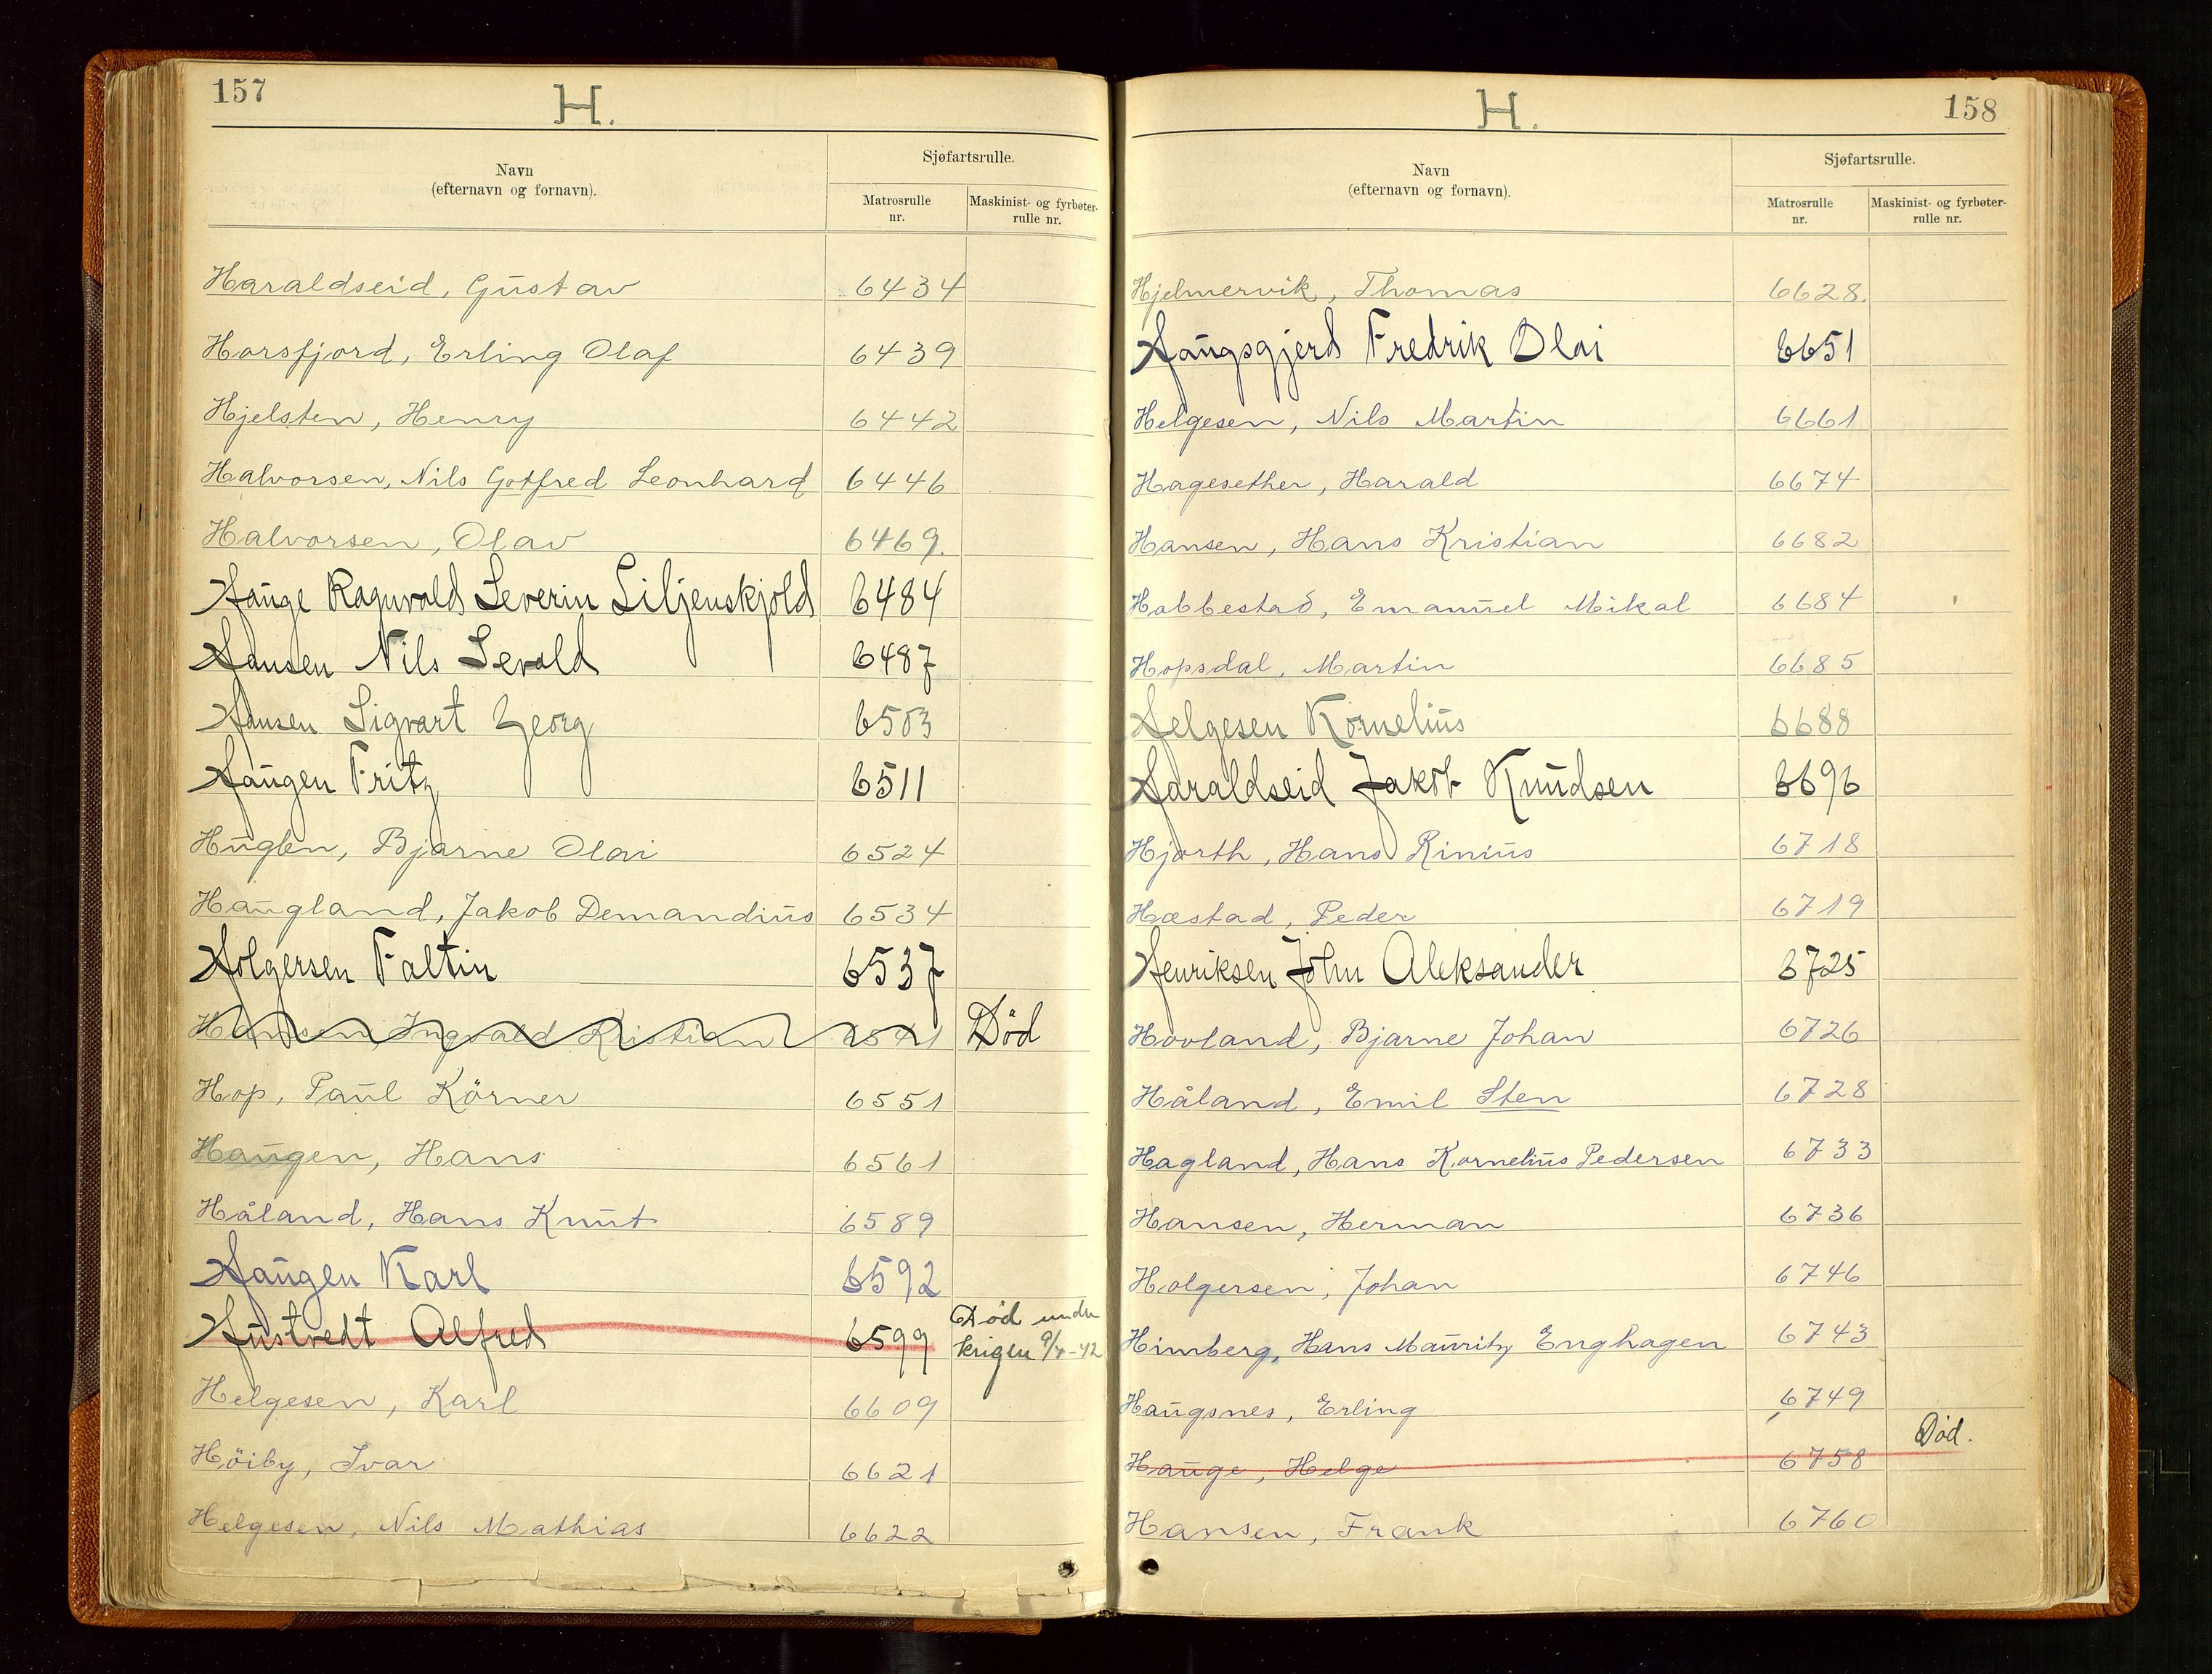 157
H.
Navn
(efternavn og fornavn).
Sjøfartsrulle.
Matrosrulle
nr.
Maskinist- og fyrbøter-
rulle nr.
Haraldseid, Gustav 6434
Horsfjord, Erling Olaf 6439
Hjelsten, Henry 6442
Halvorsen, Nils Gotfred Leonhard 6446
Halvorsen, Olav 6469.
Hauge Ragnvald Severin Liljenskjold 6484
Hansen Nils Sevald 6487
Hansen Sigvart Georg 6503
Haugen Fritz 6511
Huglen, Bjarne Olai 6524
Haugland, Jakob Demandius 6534
Holgersen Faltin 6537
Hansen, Ingvald Kristian 6541 Død
Hop, Paul Körner 6551
Haugen, Hans 6561
Håland, Hans Knut 6589
Haugen Karl 6592
Hustvedt Alfred 6599 Død under
krigen 9/4-42
Helgesen, Karl 6609
Höiby, Ivar 6621
Helgesen, Nils Mathias 6622
158
H.
Navn
(efternavn og fornavn).
Sjøfartsrulle.
Matrosrulle
nr.
Maskinist- og fyrbøter-
rulle nr.
Hjelmervik, Thomas 6628.
Haugsgjerd Fredrik Olai 6651
Helgesen, Nils Martin 6661
Hagesether, Harald 6674
Hansen, Hans Kristian 6682
Habbestad, Emanuel Mikal 6684
Hopsdal, Martin 6685
Helgesen Kornelius 6688
Haraldseid Jakob Knudsen 6696
Hjorth, Hans Rinius 6718
Hæstad, Peder 6719
Henriksen John Aleksander 6725
Hovland, Bjarne Johan 6726
Håland, Emil Sten 6728
Hagland, Hans Kornelius Pedersen 6733
Hansen, Herman 6736
Holgersen, Johan 6746
Himberg, Hans Mauritz Enghagen 6743
Haugsnes, Erling 6749
Hauge, Helge 6758 Død.
Hansen, Frank 6760